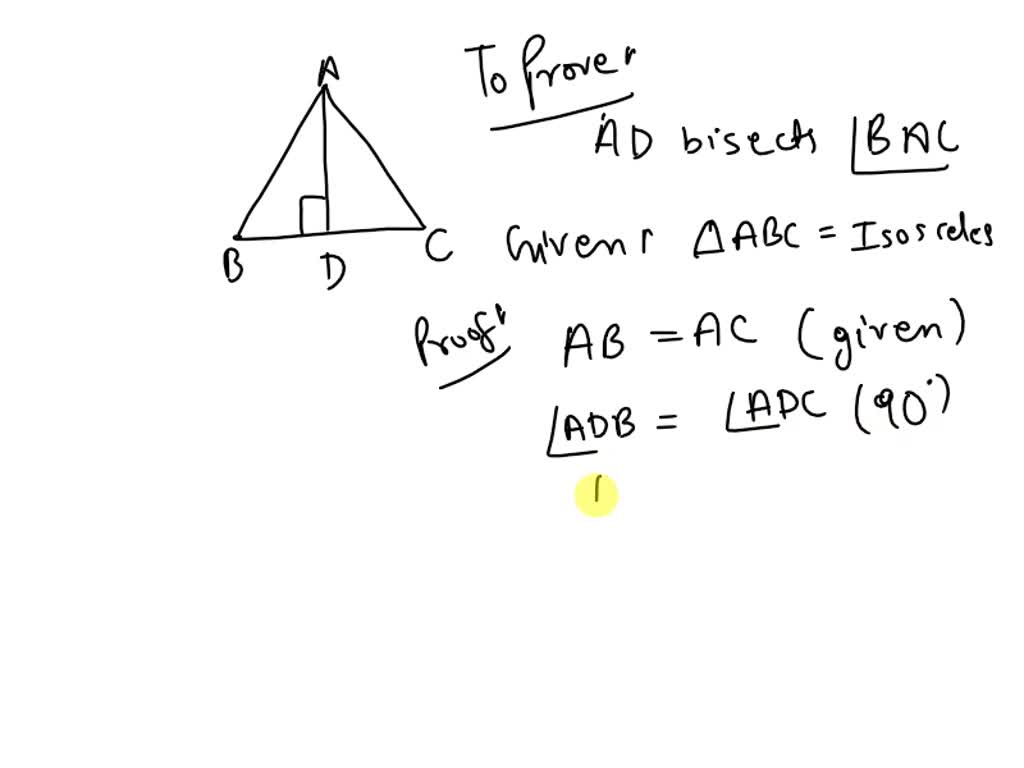 A
B
D
C
To Prove:
AD bisects ∠BAC
Given: ΔABC = Isosceles
Proof: AB = AC (given)
∠ADB = ∠ADC (90°)